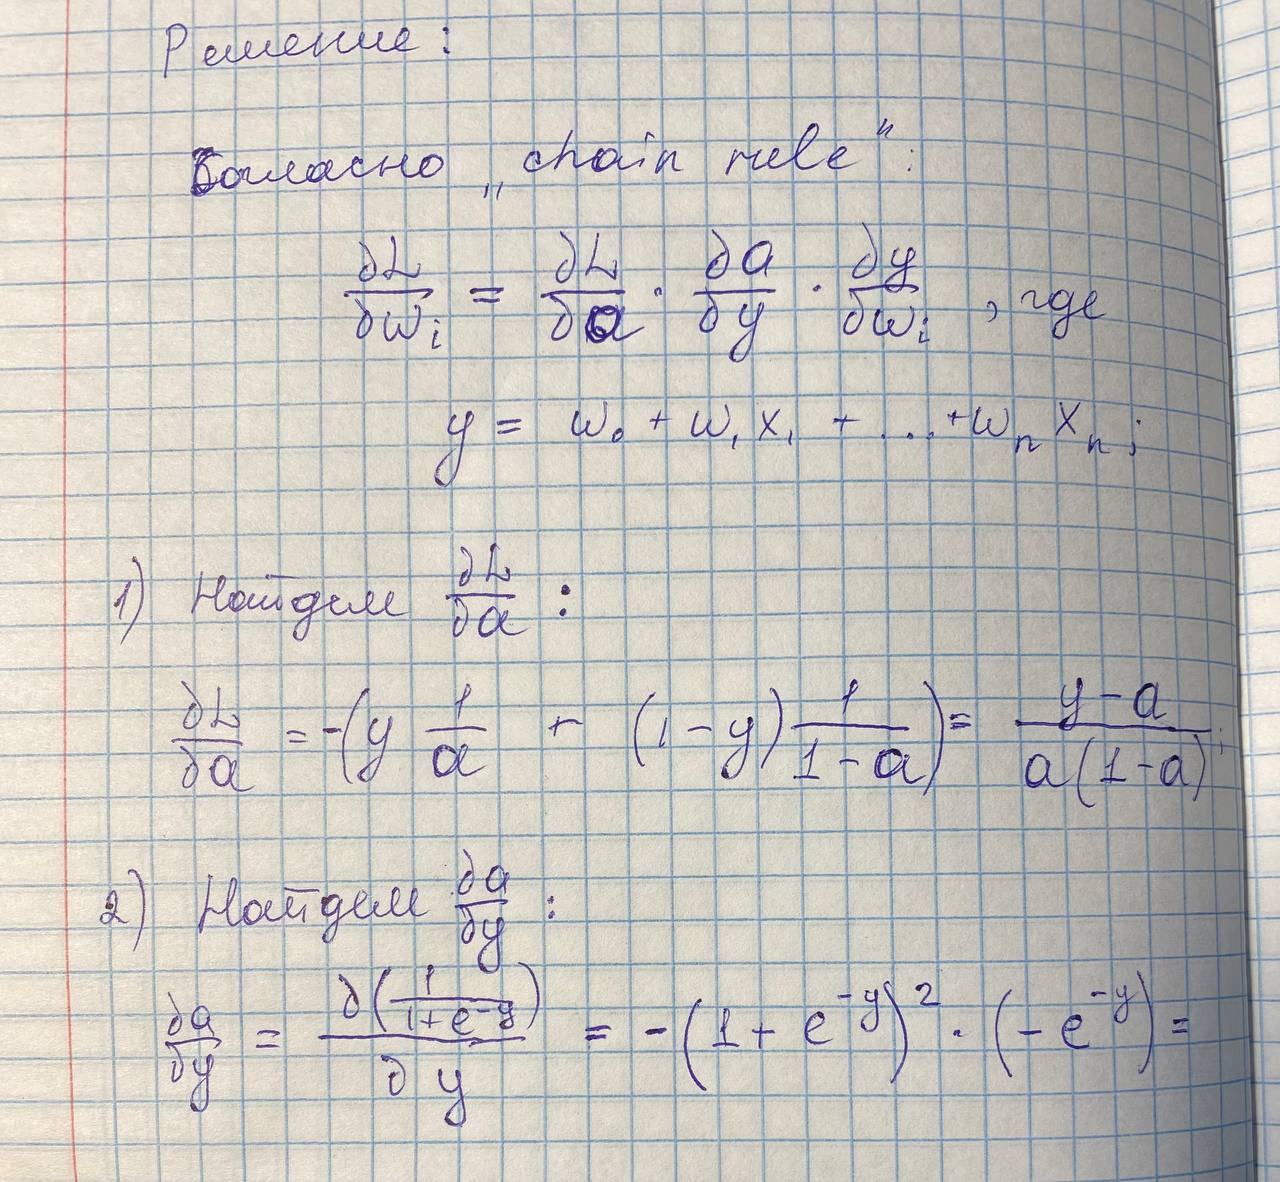 Решение:
Согласно „chain rule":
∂L/∂wᵢ = ∂L/∂a · ∂a/∂y · ∂y/∂wᵢ , где
y = w₀ + w₁x₁ + ... + wₙxₙ;
1) Найдем ∂L/∂a :
∂L/∂a = -(y 1/a - (1-y) 1/(1-a)) = (y-a)/(a(1-a));
2) Найдем ∂a/∂y :
∂a/∂y = ∂(1/(1+e^(-y)))/∂y = -(1+e^(-y))² · (-e^(-y)) =